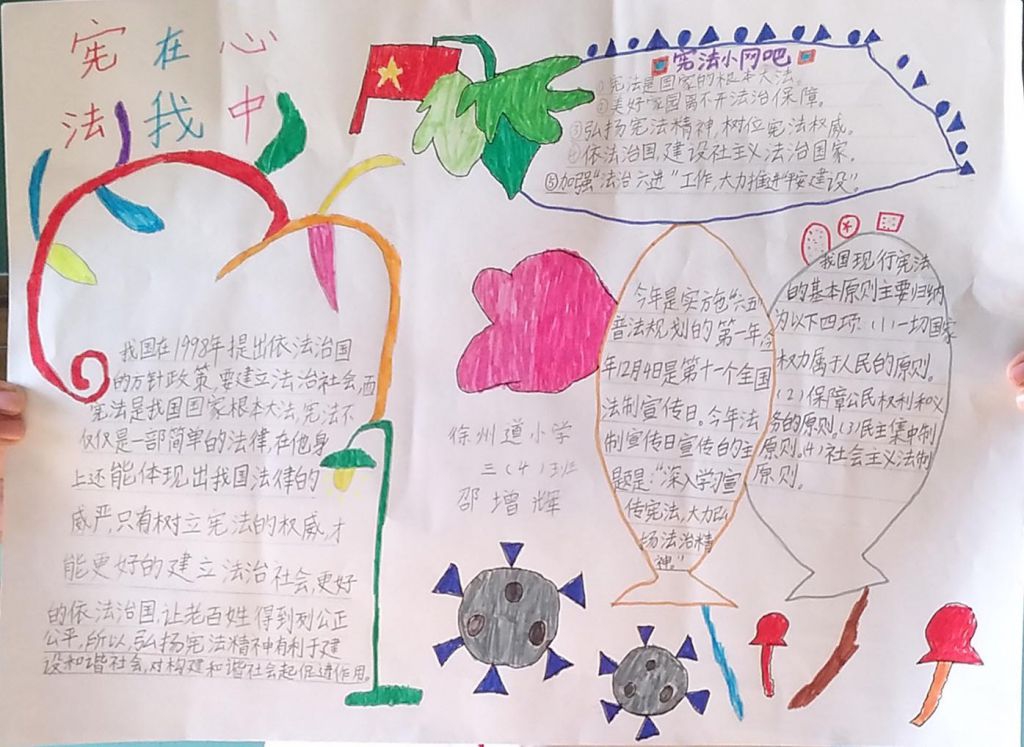 宪在心
法我中
宪法小网吧
①宪法是国家的根本大法。
②美好家园离不开法治保障。
③弘扬宪法精神,树位宪法权威。
④依法治国,建设社主义法治国家。
⑤加强“法治六进”工作,大力推进“平安建设”。
我国在1998年提出依法治国
的方针政策,要建立法治社会,而
宪法是我国国家根本大法,宪法不
仅仅是一部简单的法律,在他身
上还能体现出我国法律的
威严,只有树立宪法的权威,才
能更好的建立法治社会,更好
的依法治国,让老百姓得到公正
公平,所以,弘扬宪法精神有利于建
设和谐社会,对构建和谐社会起促进作用。
徐州道小学
三(4)班
邵增辉
今年是实施“六五”
普法规划的第一年,今
年12月4日是第十一个全国
法制宣传日。今年法
制宣传日宣传的主
题是:“深入学习宣
传宪法,大力弘
扬法治精
神。”
我国现行宪法
的基本原则主要归纳
为以下四项:(1)一切国家
权力属于人民的原则。
(2)保障公民权利和义
务的原则。(3)民主集中制
原则。(4)社会主义法制
原则。